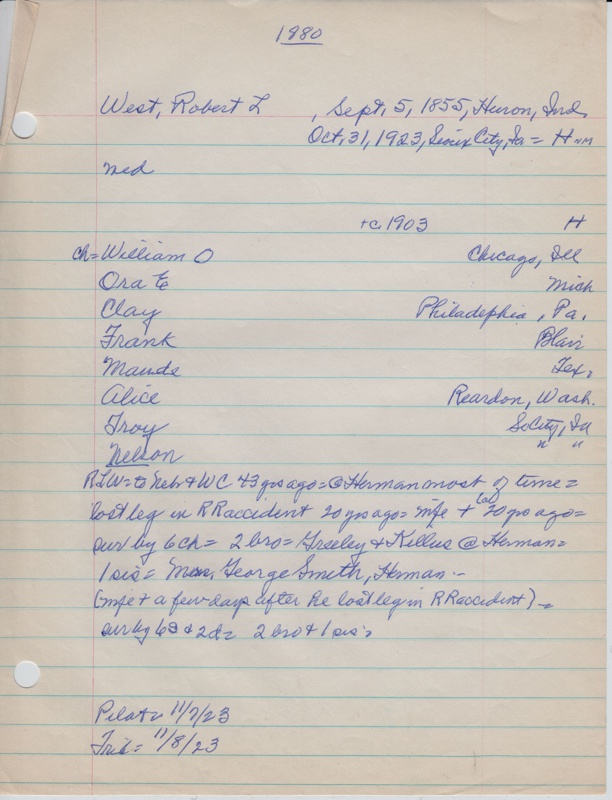 1980
West, Robert L , Sept. 5, 1855, Huron, Ind.
Oct. 31, 1923, Sioux City, Ia = H
md
+c. 1903 H
ch = William O Chicago, Ill
Ora E Mich
Clay Philadelphia, Pa.
Frank Blair
Maude Tex.
Alice Reardon, Wash.
Troy So City, Ia
Nelson " "
RLW = to Nebr & WC 43 yrs ago = @ Herman most of time =
lost leg in RR accident 20 yrs ago = wife + 20 yrs ago =
sur by 6 ch = 2 bro = Greeley & Kellus @ Herman =
1 sis = Mrs. George Smith, Herman -
(wife + a few days after he lost leg in RR accident) =
sur by 6 & 2 d = 2 bro & 1 sis =
Pilot = 11/7/23
Trib = 11/8/23